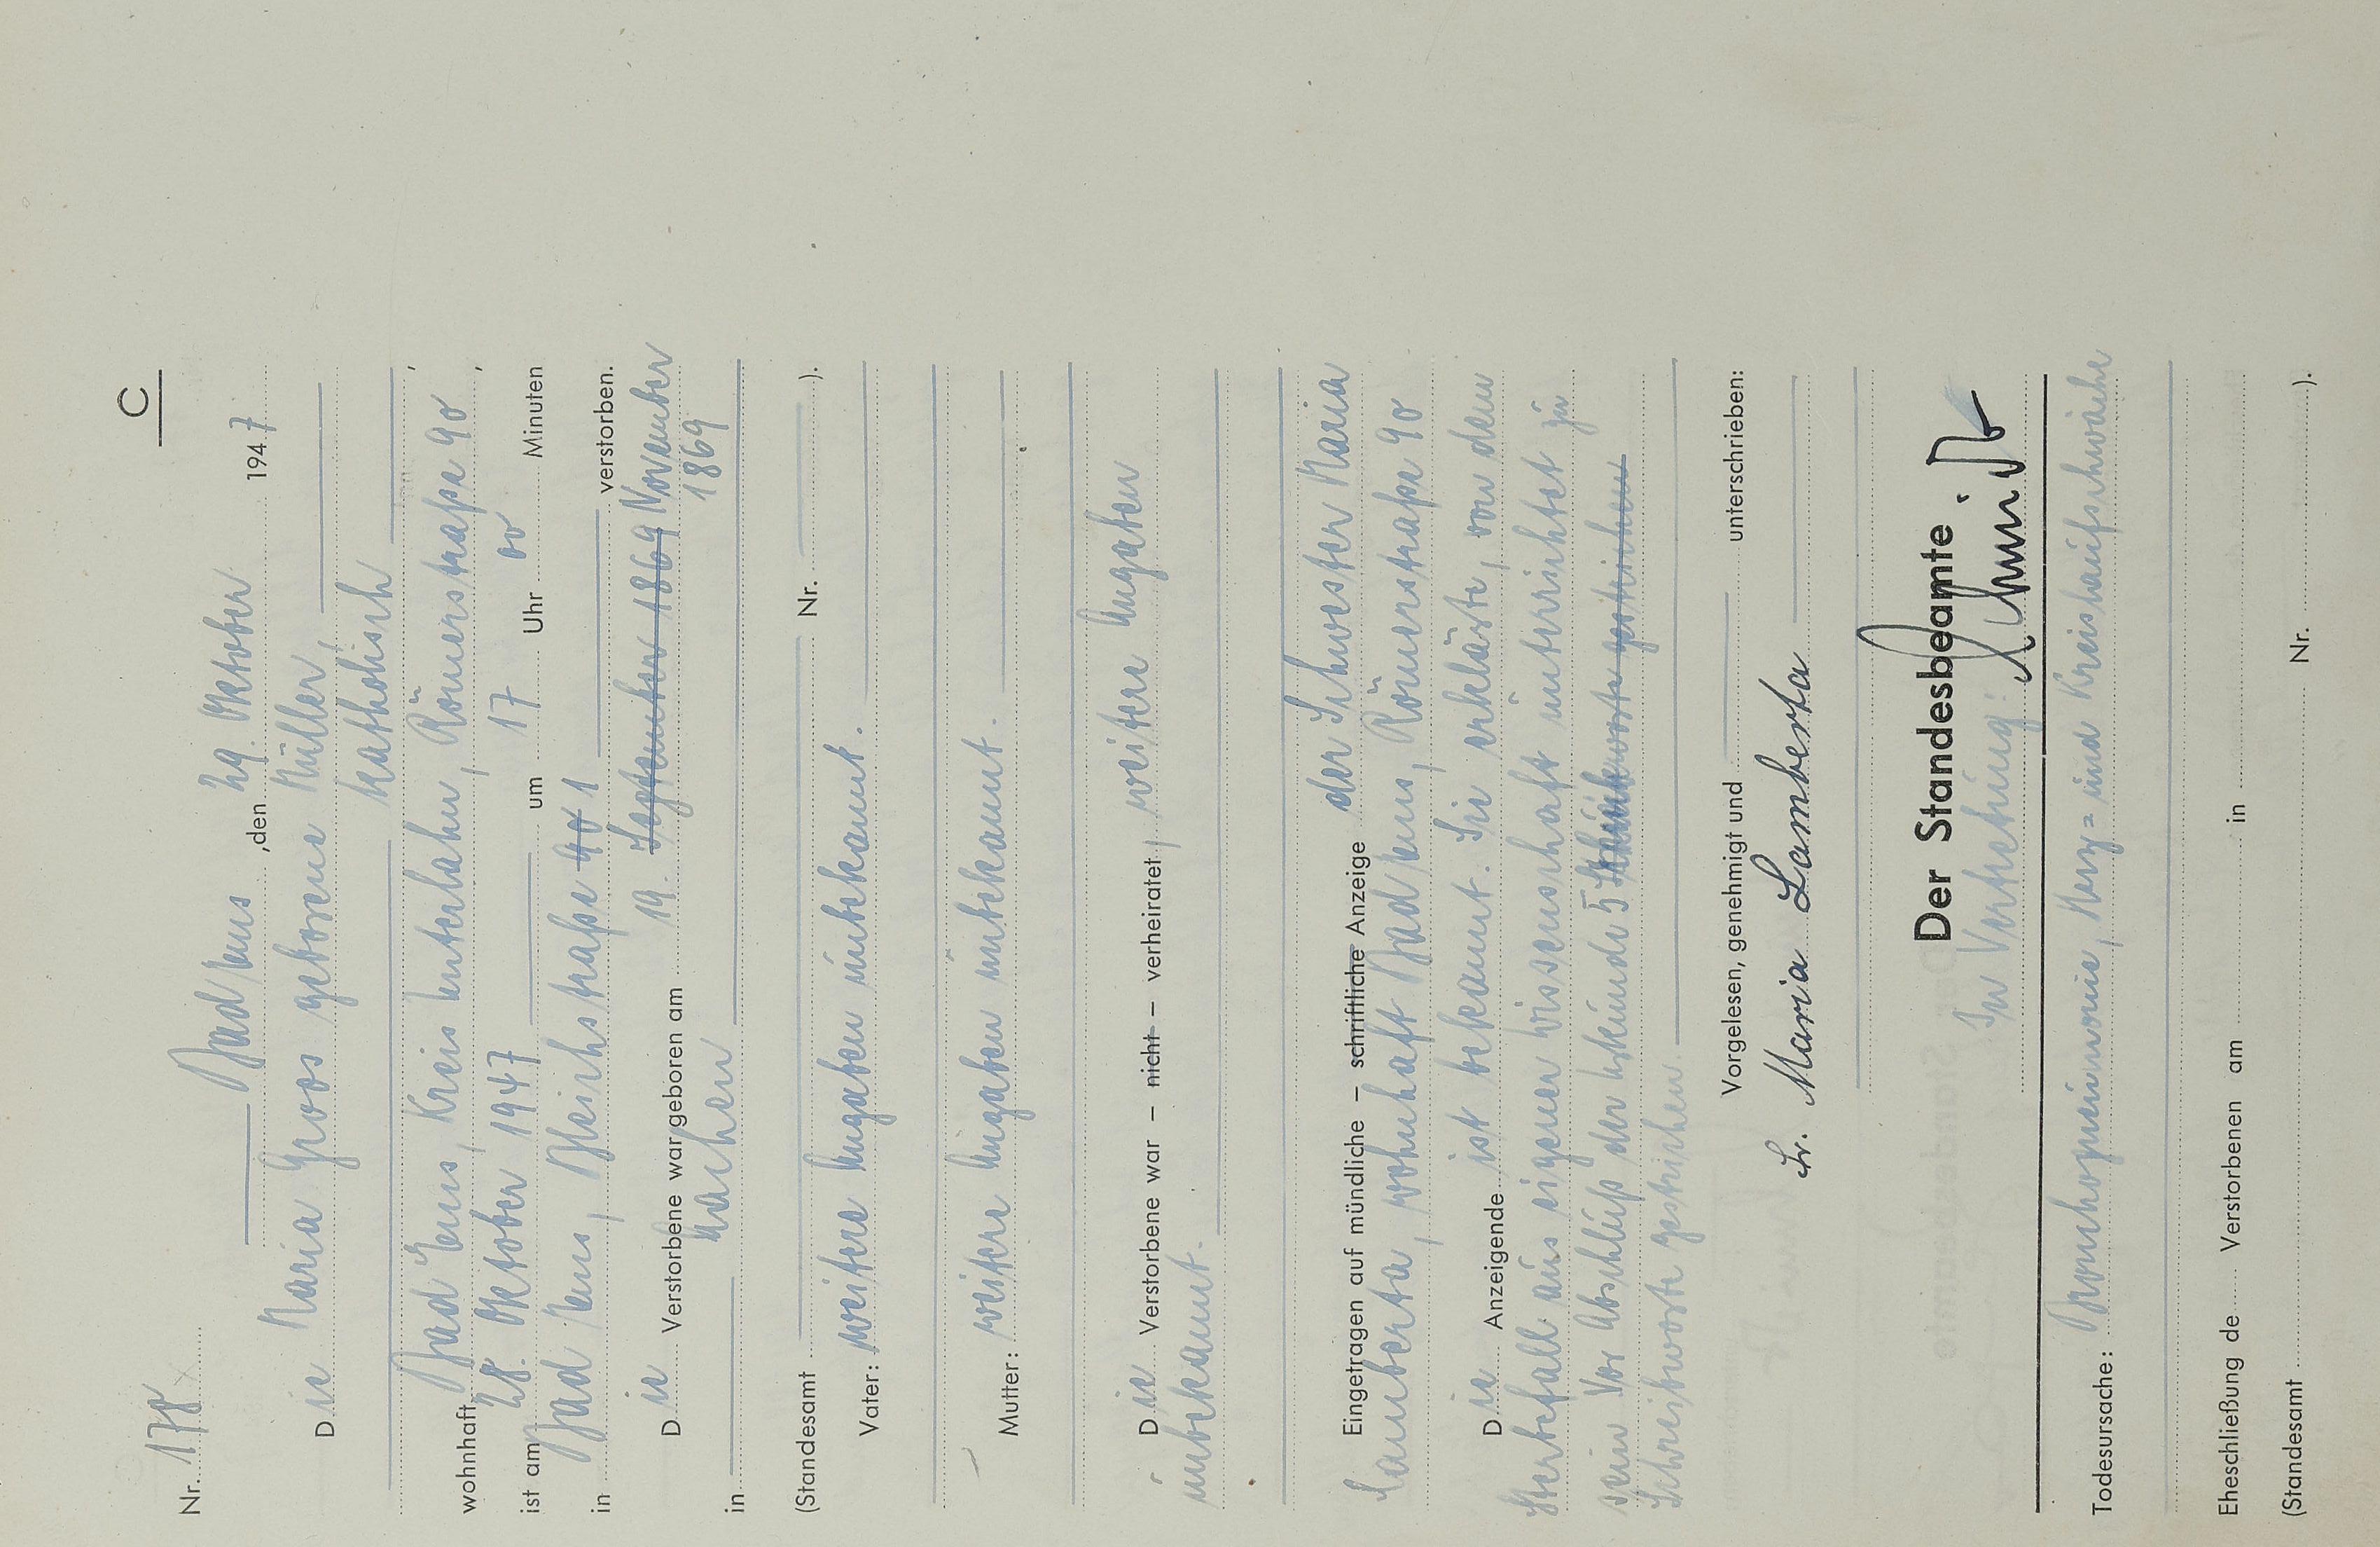 C
Nr. 178
Bad Ems, den 29. Oktober 1947
Die Maria Groos geborene Müller,
katholisch
wohnhaft Bad Ems, Kreis Unterlahn, Römerstraße 90,
ist am 28. Oktober 1947 um 17 Uhr 00 Minuten
in Bad Ems, Bleichstraße 90 1 verstorben.
Die Verstorbene war geboren am 19. September 1869 November
1869
in Aachen
(Standesamt Nr. ).
Vater: weitere Angaben unbekannt.
Mutter: weitere Angaben unbekannt.
Die Verstorbene war – nicht – verheiratet, weitere Angaben
unbekannt.
Eingetragen auf mündliche – schriftliche Anzeige der Schwester Maria
Lamberta, wohnhaft Bad Ems, Römerstraße 90
Die Anzeigende ist bekannt. Sie erklärte, von dem
Sterbefall aus eigener Wissenschaft unterrichtet zu
sein Vor Abschluß der Urkunde 5 gestrichen
Schreibworte gestrichen.
Vorgelesen, genehmigt und unterschrieben:
Sr. Maria Lamberta
Der Standesbeamte
In Vertretung:
Todesursache: Bronchopneumonie, Herz= und Kreislaufschwäche
Eheschließung de Verstorbenen am in
(Standesamt Nr. ).